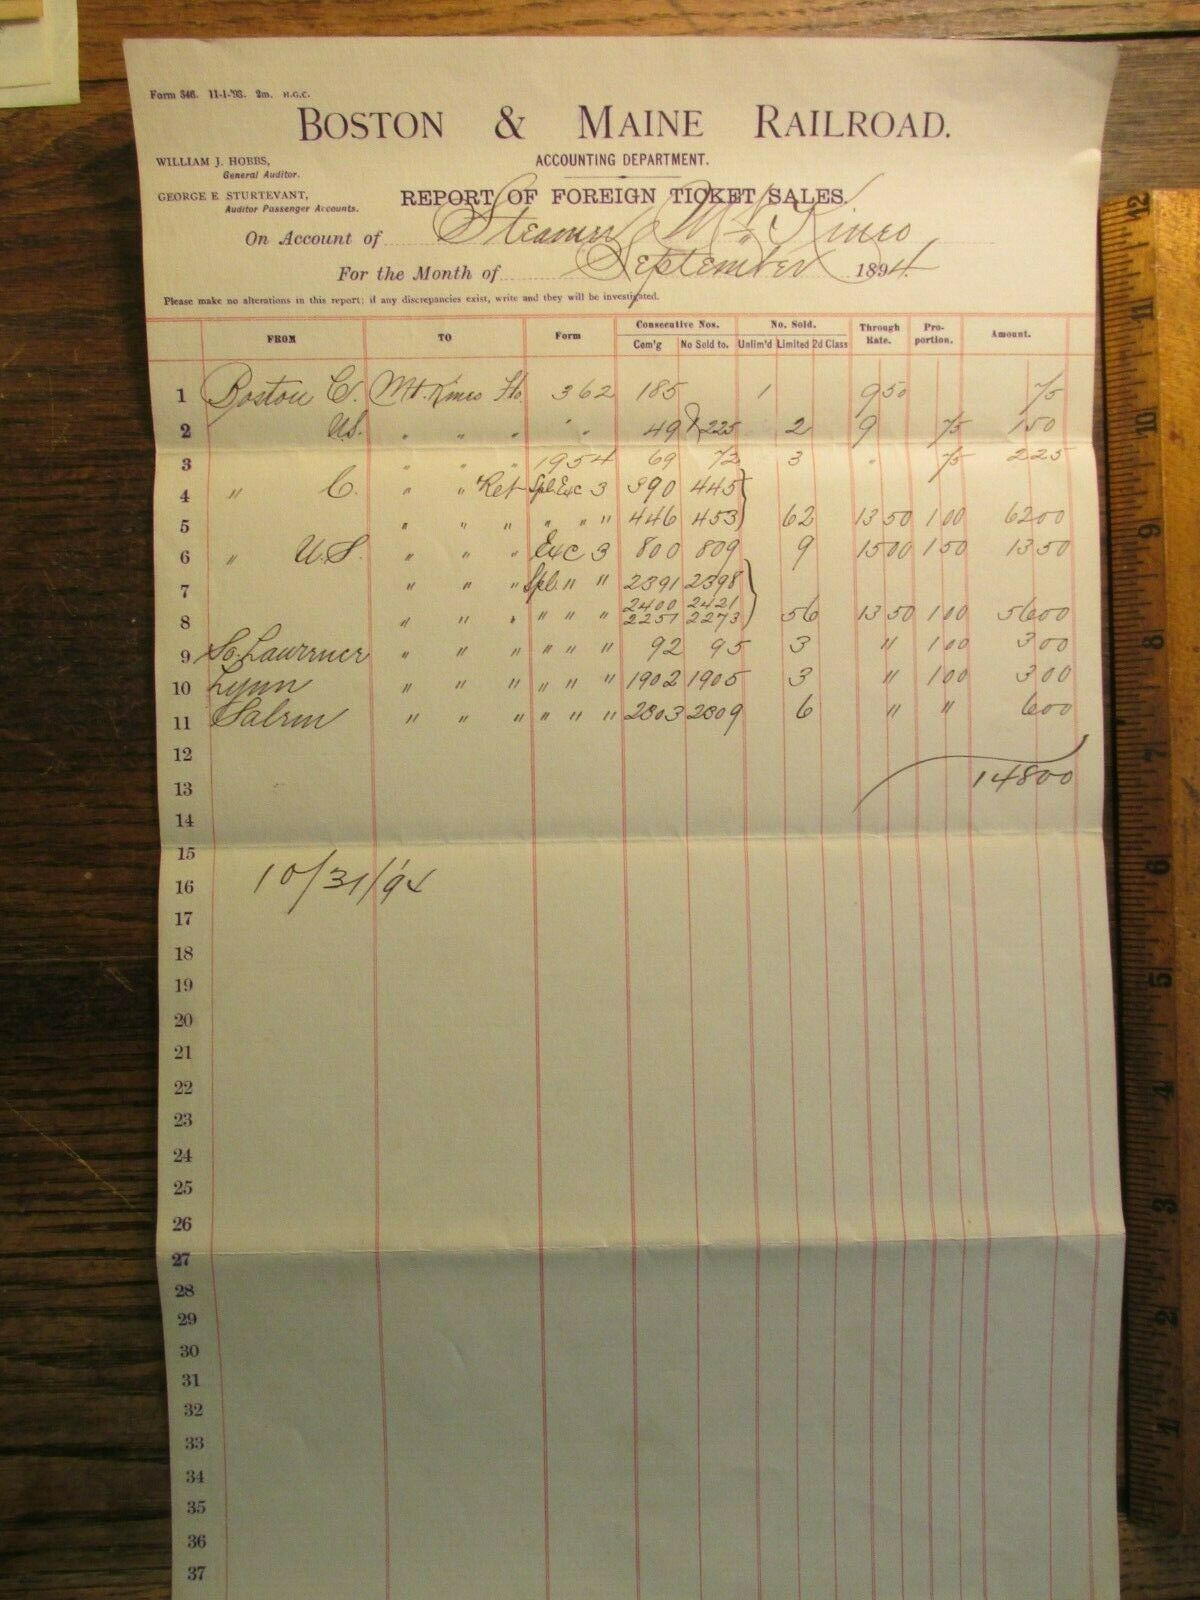 Form 346. 11-1-'93. 2m. H.G.C.
BOSTON & MAINE RAILROAD.
WILLIAM J. HOBBS,
General Auditor.
ACCOUNTING DEPARTMENT.
GEORGE E. STURTEVANT,
Auditor Passenger Accounts.
REPORT OF FOREIGN TICKET SALES.
On Account of Steamer Mt. Kineo
For the Month of September 1894
Please make no alterations in this report; if any discrepancies exist, write and they will be investigated.
FROM TO Form Consecutive Nos. No. Sold. Through Rate. Pro-portion. Amount.
Com'g No Sold to. Unlim'd Limited 2d Class
1 Boston C. Mt. Kineo Ho. 362 185 1 9 50 75
2 U.S. " " " " " 49 225 2 9 75 1 50
3 " " " 1954 69 72 3 " 75 2 25
4 " C. " " Ret Spl. Exc 3 390 445
5 " " " " " " 446 453 62 13 50 1 00 62 00
6 " U.S. " " " Exc 3 800 809 9 15 00 1 50 13 50
7 " " " Spl. " " 2391 2398
2400 2421
8 " " " " " " 2251 2273 56 13 50 1 00 56 00
9 So. Lawrence " " " " " " 92 95 3 " 1 00 3 00
10 Lynn " " " " " " 1902 1905 3 " 1 00 3 00
11 Salem " " " " " " 2803 2809 6 " " 6 00
12
13 148 00
14
15
16 10/31/'94
17
18
19
20
21
22
23
24
25
26
27
28
29
30
31
32
33
34
35
36
37
12
11
10
9
8
7
6
5
4
3
2
1